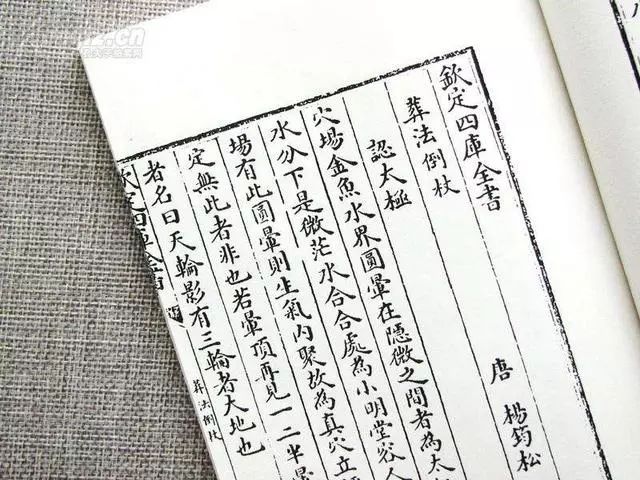 欽定四庫全書
葬法倒杖
唐 楊筠松
認太極
穴場金魚水界圓暈在隱微之間者為太
水分下是微茫水合合處為小明堂容人
場有此圓暈則生氣内聚故為真穴立
定無此者非也若暈頂再見一二半暈
者名曰天輪影有三輪者大地也
欽定四庫全書
葬法倒杖